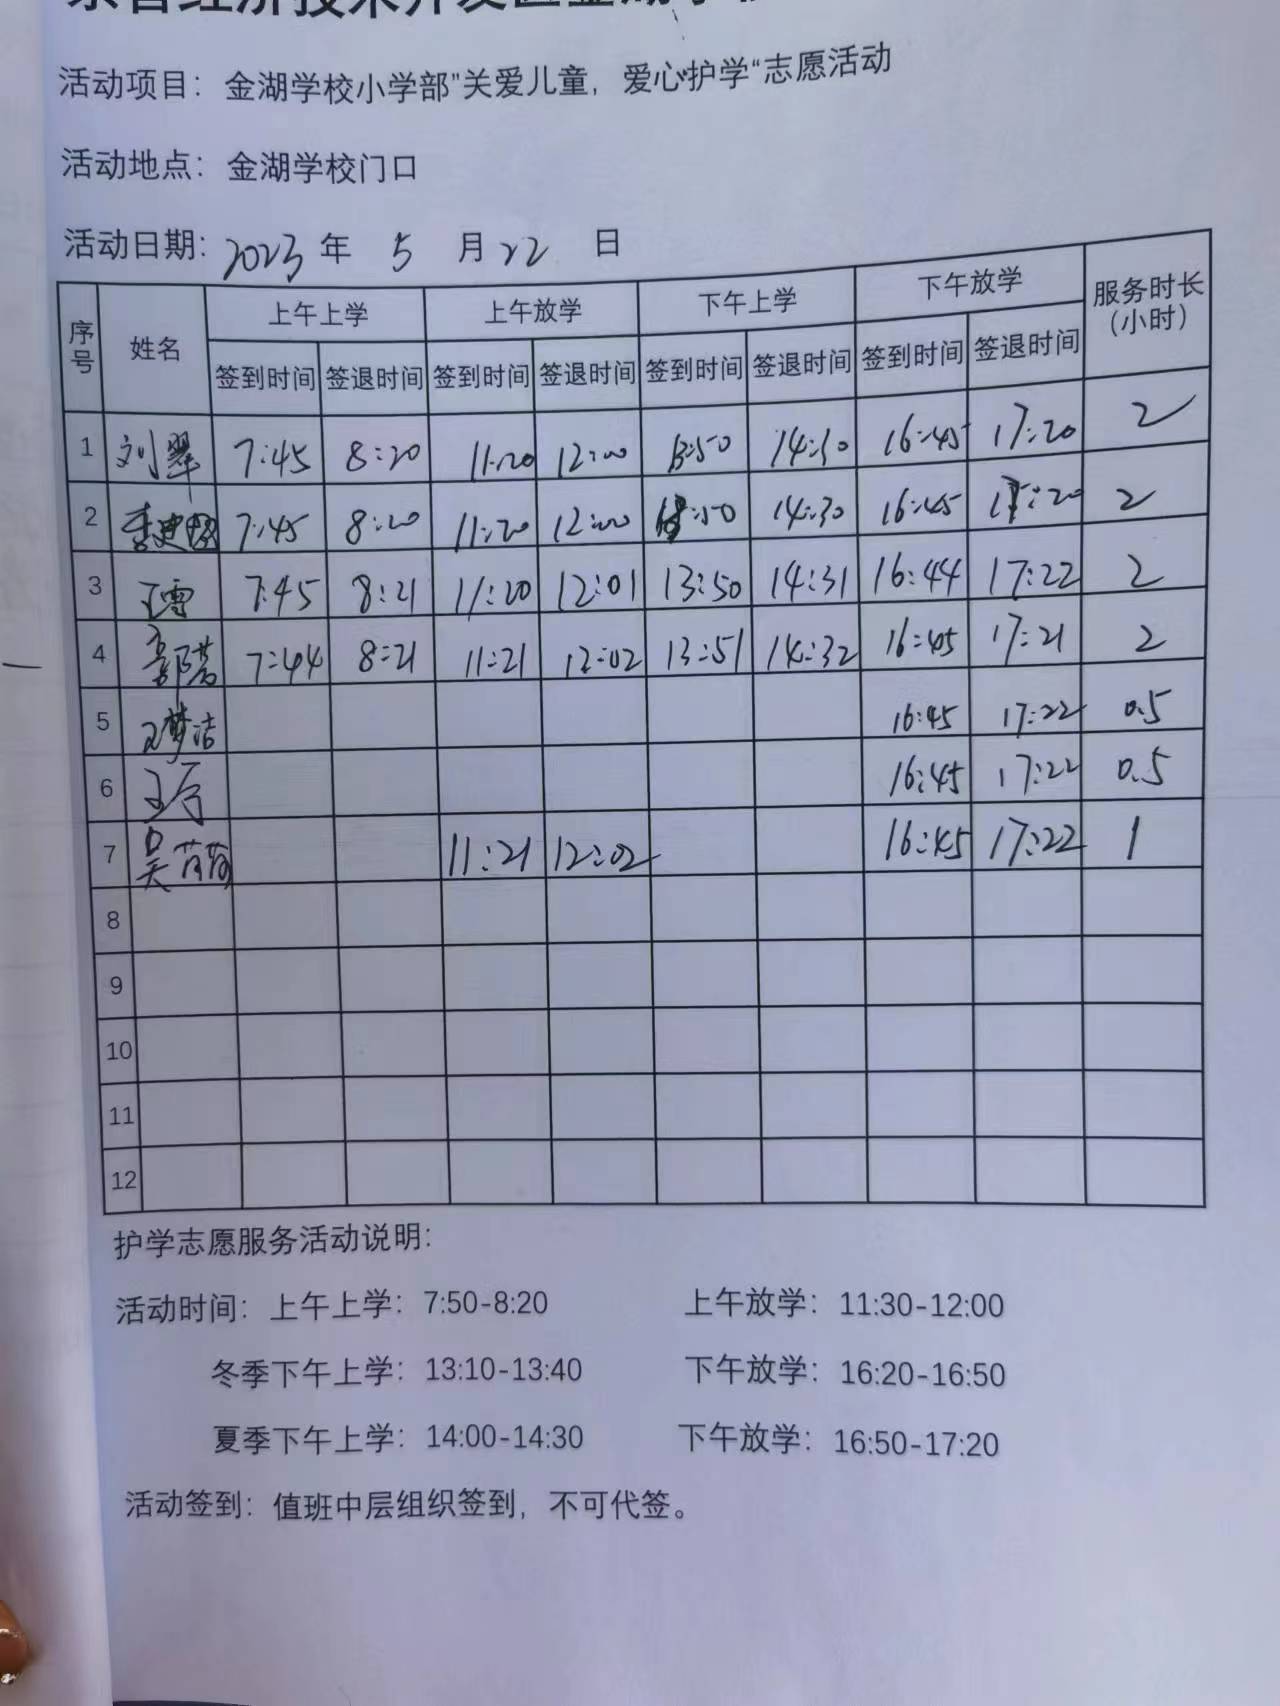 活动项目：金湖学校小学部"关爱儿童，爱心护学"志愿活动
活动地点：金湖学校门口
活动日期：2023 年 5 月 22 日
序号 姓名 上午上学 上午放学 下午上学 下午放学 服务时长（小时）
签到时间 签退时间 签到时间 签退时间 签到时间 签退时间 签到时间 签退时间
1 刘翠 7:45 8:20 11:20 12:00 13:50 14:30 16:45 17:20 2
2 7:45 8:20 11:20 12:00 13:50 14:30 16:45 17:20 2
3 王雪 7:45 8:21 11:20 12:01 13:50 14:31 16:44 17:22 2
4 7:44 8:21 11:21 12:02 13:51 14:32 16:45 17:21 2
5 王梦洁 16:45 17:22 0.5
6 16:45 17:22 0.5
7 11:21 12:02 16:45 17:22 1
8
9
10
11
12
护学志愿服务活动说明：
活动时间：上午上学：7:50-8:20 上午放学：11:30-12:00
冬季下午上学：13:10-13:40 下午放学：16:20-16:50
夏季下午上学：14:00-14:30 下午放学：16:50-17:20
活动签到：值班中层组织签到，不可代签。